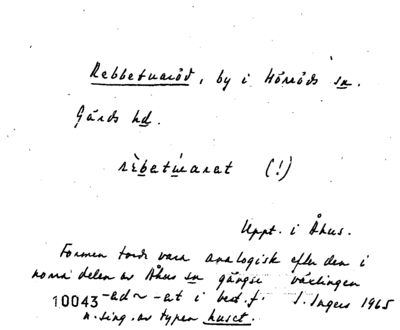 Rebbetuaröd, by i Hörröds sn.
Gärds hd.
rèbetu̇arat (!)
Uppt. i Åhus.
Formen torde vara analogisk efter den i
norra delen av Åhus sn gängse växlingen
10043 -ad ~ -at i best. f. I. Ingers 1965
n. sing. av typen huset.